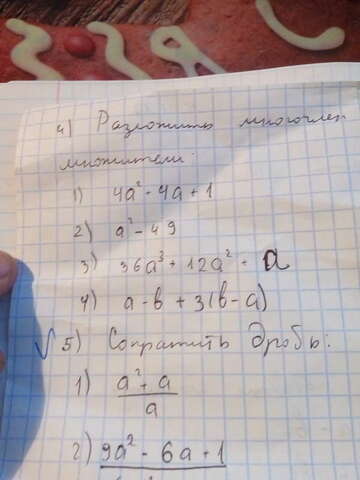 4) Разложить многочлен
множители:
1) 4a² - 4a + 1
2) a² - 49
3) 36a³ + 12a² - a
4) a - b + 3(b - a)
5) Сократить дробь:
1) a² + a
a
2) 9a² - 6a + 1